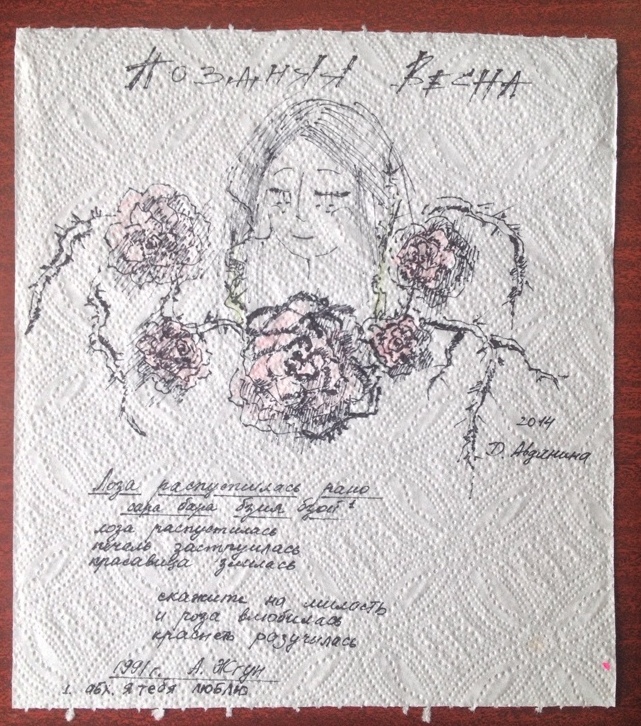 Поздняя Весна
2014
Д. Авдинина
Лоза распустилась рано
сара бара бзия бзой¹
лоза распустилась
печаль заструилась
красавица злилась
скажите на милость
и роза влюбилась
краснеть разучилась
1991 г. А. Жгун
1. абх. я тебя люблю